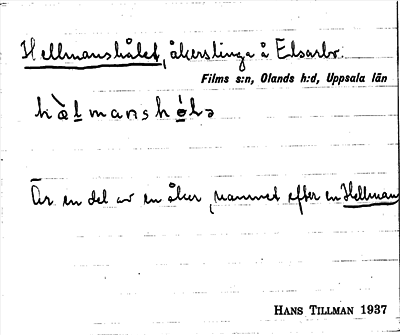 Hellmanshålet, åkerslinga å Elsarbo.
Films s:n, Olands h:d, Uppsala län
hæ̀lmanshó̤lə
Är en del av en åker, namnet efter en Hellman
HANS TILLMAN 1937